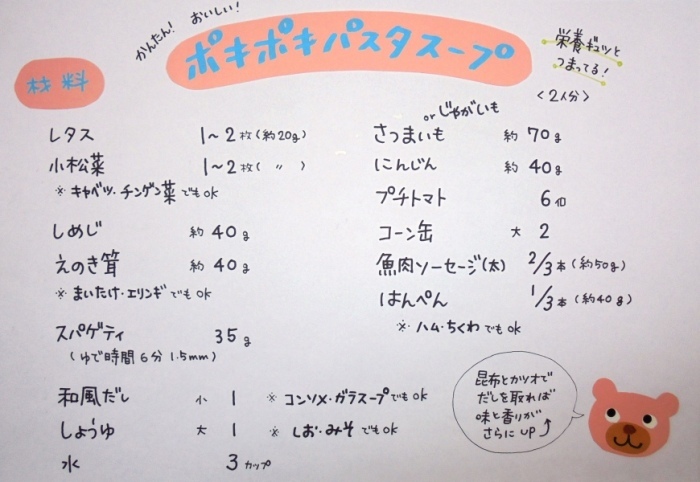 かんたん! おいしい!
ポキポキパスタスープ
栄養ギュッと
つまってる!
材料
<2人分>
レタス 1〜2枚(約20g)
小松菜 1〜2枚( 〃 )
※キャベツ・チンゲン菜でもOK
しめじ 約40g
えのき茸 約40g
※まいたけ・エリンギでもOK
スパゲティ 35g
(ゆで時間6分 1.5mm)
和風だし 小 1 ※コンソメ・ガラスープでもOK
しょうゆ 大 1 ※しお・みそでもOK
水 3カップ
orじゃがいも
さつまいも 約70g
にんじん 約40g
プチトマト 6個
コーン缶 大 2
魚肉ソーセージ(太) 2/3本(約50g)
はんぺん 1/3本(約40g)
※ハム・ちくわでもOK
昆布とカツオで
だしを取れば
味と香りが
さらにUP